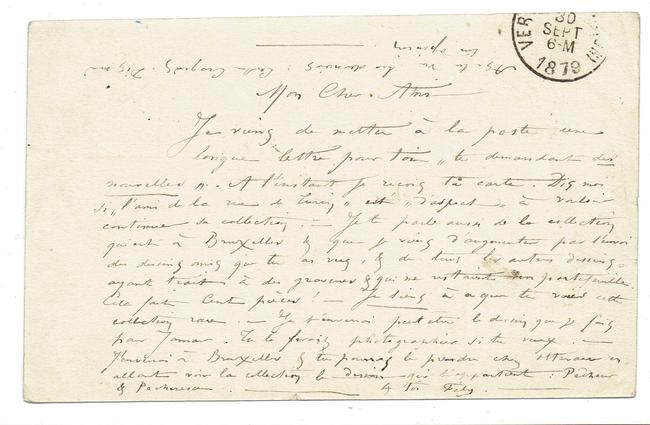 VER
30
SEPT
6-M
1879
Mon Cher Ami
Je viens de mettre à la poste une
longue lettre pour toi „ te demandant des
nouvelles ". A l'instant je reçois ta carte. Dis moi
si „ l'ami de la rue de " est „ d'aspect " à vouloir
continuer sa collection. — Je te parle aussi de la collection
qui est à Bruxelles & que je viens d'augmenter par l'envoi
des dessins que tu as vus, & de tous les autres dessins
ayant traits à des gravures & qui restaient portefeuille.
Cela fait Cent pièces! — Je tiens à ce que tu voies cette
collection rare. — Je t'enverrai peut être le dessin que je fais
par . Tu le feras photographier si tu veux. —
J'enverrai à Bruxelles & tu pourras le prendre chez en
allant voir la collection le dessin qui t'appartient : Pêcheur
& Pêcheresse. à toi Fely.